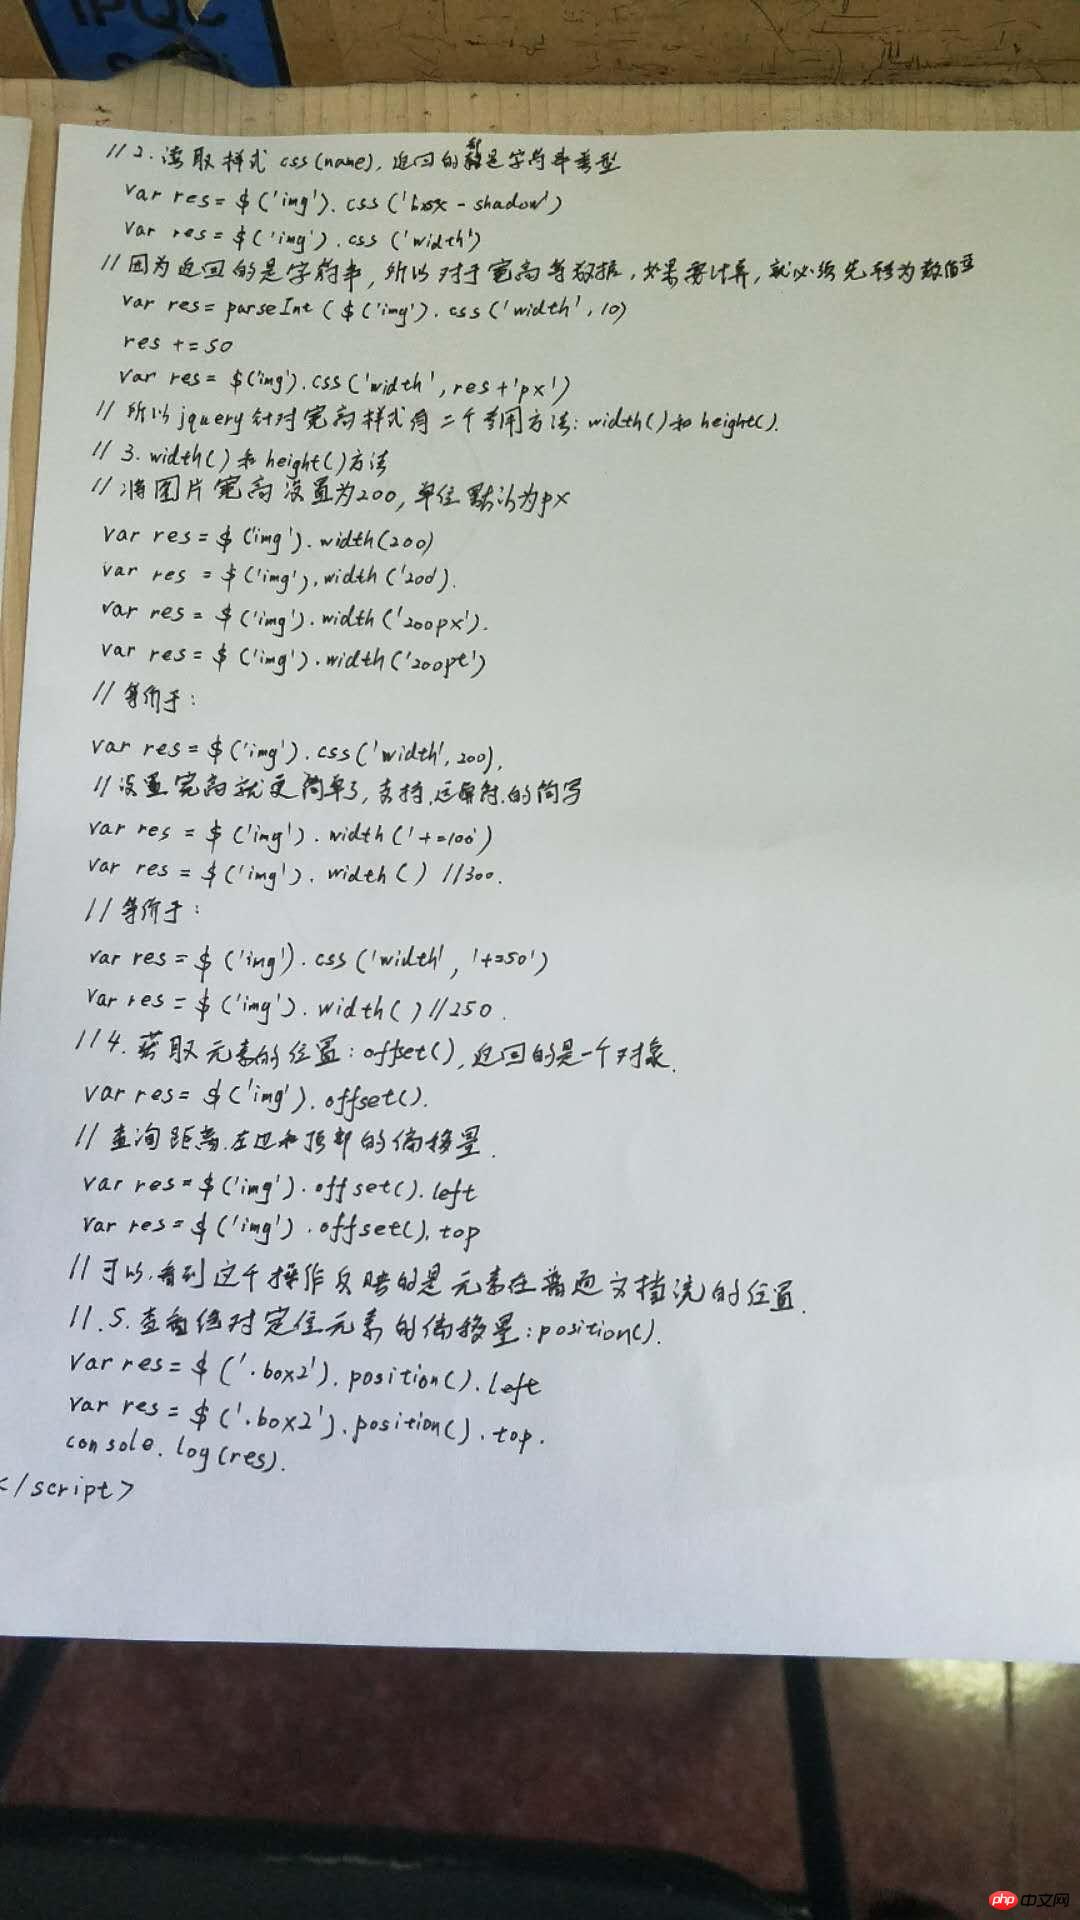 IPQC
//2.读取样式 css(name),返回的都是字符串类型
var res=$('img').css('box-shadow')
var res=$('img').css('width')
//因为返回的是字符串,所以对于宽高等数据,如果要计算,就必须先转为数值型
var res=parseInt($('img').css('width',10)
res +=50
var res=$('img').css('width',res+'px')
//所以jquery针对宽高样式有二个专用方法:width()和height().
//3.width()和height()方法
//将图片宽高设置为200,单位默认为px
var res=$('img').width(200)
var res=$('img').width('200').
var res=$('img').width('200px').
var res=$('img').width('200pt')
//等价于:
var res=$('img').css('width',200),
//设置宽高就更简单了,支持运算符的简写
var res=$('img').width('+=100')
var res=$('img').width() //300.
//等价于:
var res=$('img').css('width','+=50')
var res=$('img').width()//250.
//4.获取元素的位置:offset(),返回的是一个对象.
var res=$('img').offset().
//查询距离左边和顶部的偏移量.
var res=$('img').offset().left
var res=$('img').offset().top
//可以看到这个操作反映的是元素在普通文档流的位置.
//.5.查看绝对定位元素的偏移量:position().
var res=$('.box2').position().left
var res=$('.box2').position().top.
console.log(res).
</script>
php中文网